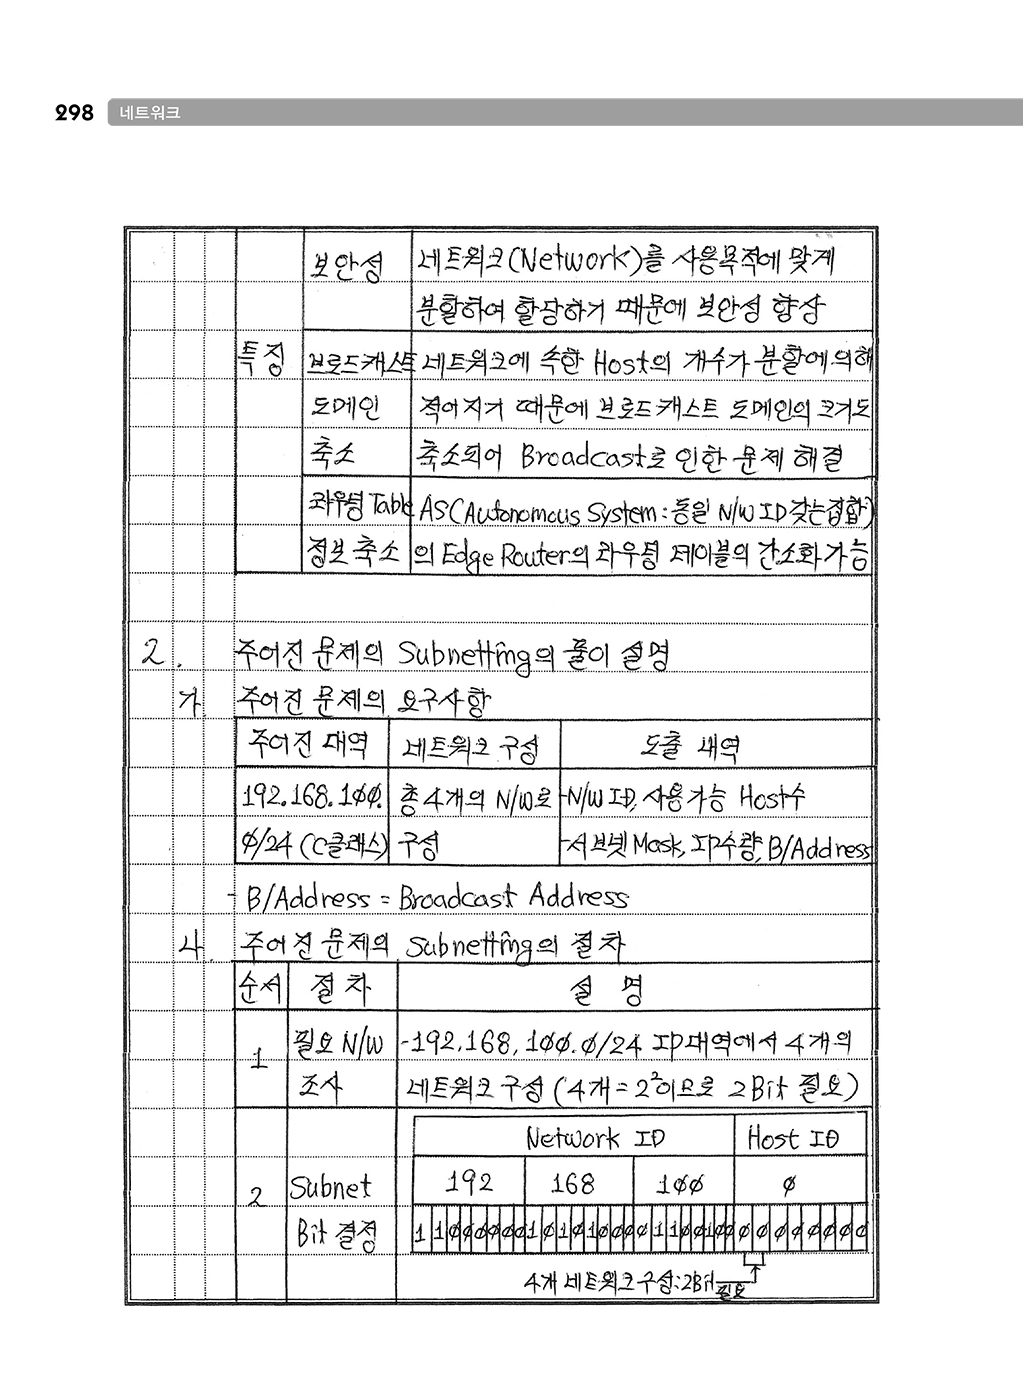 298 네트워크
보안성 네트워크(Network)를 사용목적에 맞게
분할하여 할당하기 때문에 보안성 향상
특징 브로드캐스트 네트워크에 속한 Host의 개수가 분할에 의해
도메인 적어지기 때문에 브로드캐스트 도메인의 크기도
축소 축소되어 Broadcast로 인한 문제 해결
라우팅 Table AS(Autonomous System : 동일 N/W ID 갖는 집합)
정보 축소 의 Edge Router의 라우팅 테이블의 간소화 가능
2. 주어진 문제의 Subnetting의 풀이 설명
가. 주어진 문제의 요구사항
주어진 대역 네트워크 구성 도출 내역
192.168.100. 총 4개의 N/W로 -N/W ID, 사용가능 Host수
0/24 (C클래스) 구성 -서브넷 Mask, IP수량, B/Address
- B/Address = Broadcast Address
나. 주어진 문제의 Subnetting의 절차
순서 절 차 설 명
1 필요 N/W -192.168.100.0/24 IP대역에서 4개의
조사 네트워크 구성 (4개 = 2²이므로 2Bit 필요)
Network ID Host ID
2 Subnet 192 168 100 0
Bit 결정 1 1 0 0 0 0 0 0 1 0 1 0 1 0 0 0 0 1 1 0 0 1 0 0 0 0 0 0 0 0 0 0
4개 네트워크 구성:2Bit 필요